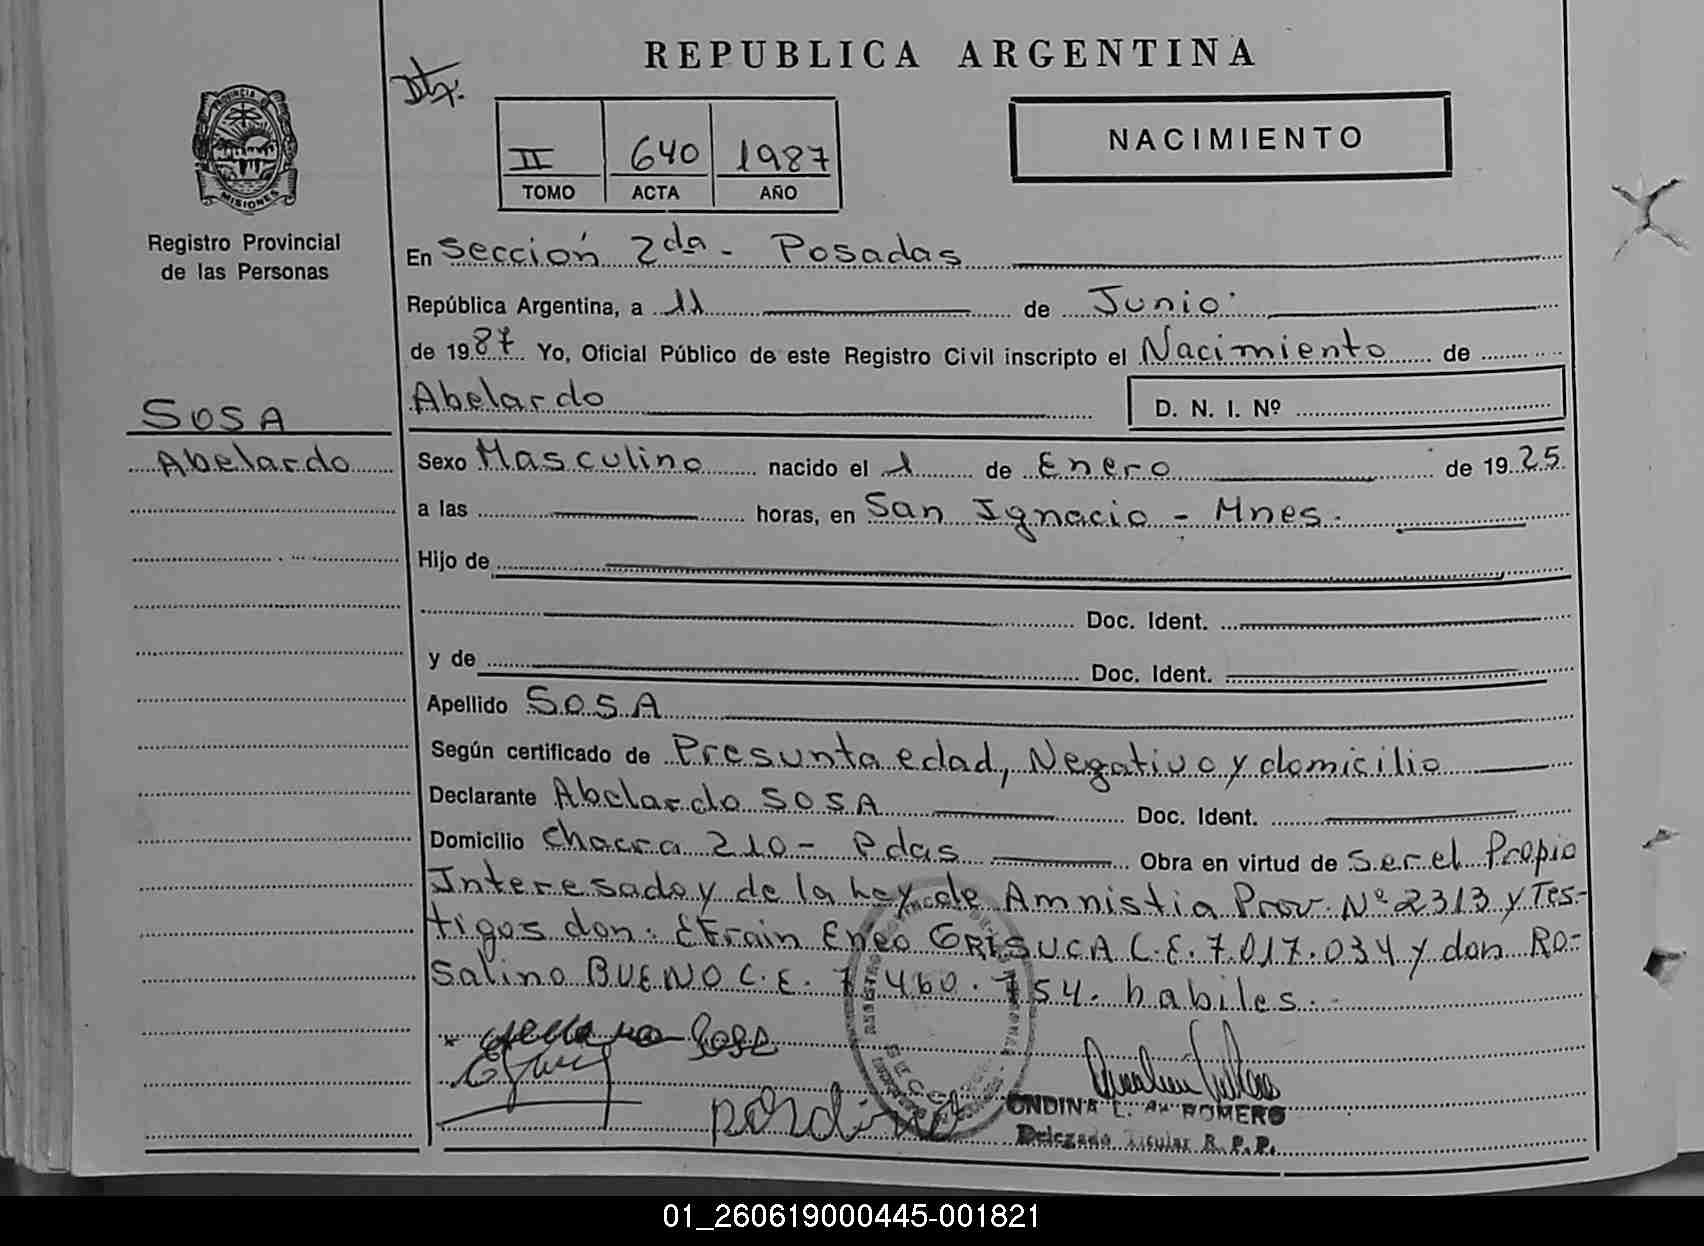 REPUBLICA ARGENTINA
PROVINCIA
MISIONES
Registro Provincial
de las Personas
II 640 1987
TOMO ACTA AÑO
NACIMIENTO
En Sección 2da - Posadas
República Argentina, a 11 de Junio
de 1987 Yo, Oficial Público de este Registro Civil inscripto el Nacimiento de
Abelardo D. N. I. Nº
SOSA
Abelardo
Sexo Masculino nacido el 1 de Enero de 1925
a las horas, en San Ignacio - Mnes.
Hijo de
Doc. Ident.
y de Doc. Ident.
Apellido SOSA
Según certificado de Presunta edad, Negativo y domicilio
Declarante Abelardo SOSA Doc. Ident.
Domicilio Chacra 210 - Pdas Obra en virtud de Ser el Propio
Interesado y de la Ley de Amnistia Prov. Nº 2313 y Tes-
tigos don: Efrain Eneo GRISUCA C.E. 7.017.034 y don Ro-
Salino BUENO C.E. 7.460.754. habiles.
Sosa
ONDINA L. ROMERO
Delegado Titular R. P. P.
01_260619000445-001821